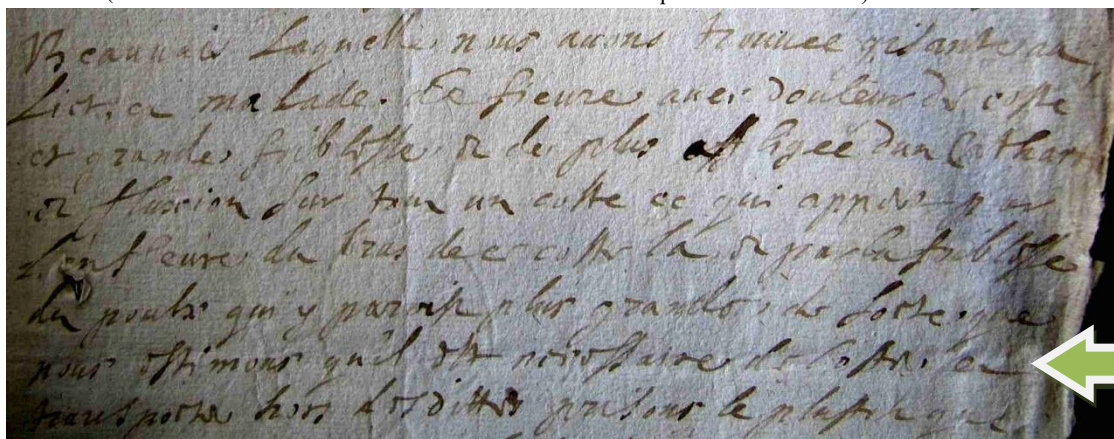 Beauvais Laquelle nous auons trouuee gisante au
Lict, et malade de fieure auec douleur de
et grande foiblesse et de plus affligée dun Cathare
et fluxion sur tout un costé ce qui appert par
L'enfleure du bras de ce costé la et par la foiblesse
du poulx qui y paroist plus grande, de sorte que
nous estimons qu'il est necessaire de la
transporter hors desdittes prisons le plustost que